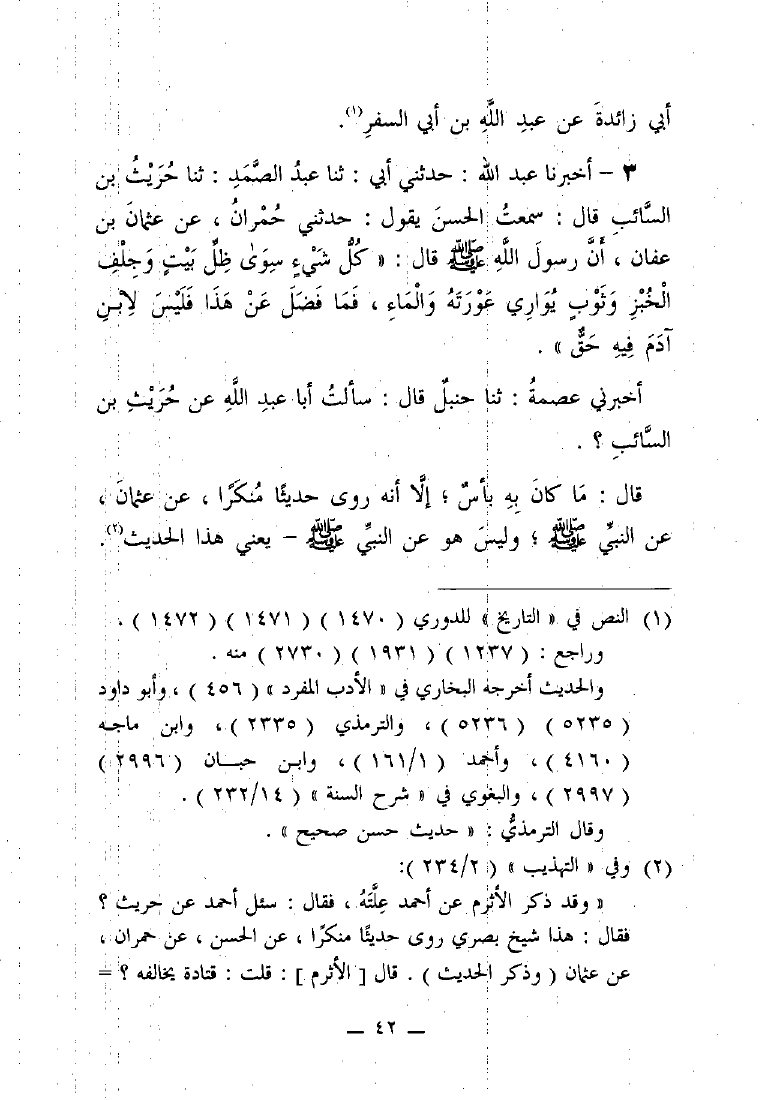 أبي زائدةَ عن عبدِ اللَّهِ بن أبي السفرِ(١).
٣ – أخبرنا عبد الله : حدثني أبي : ثنا عبدُ الصَّمَدِ : ثنا حُرَيْثُ بن
السَّائبِ قال : سمعتُ الحسنَ يقول : حدثني حُمْرانُ ، عن عثمانَ بن
عفان ، أَنَّ رسولَ اللَّهِ ﷺ قال : « كُلُّ شَيْءٍ سِوَى ظِلِّ بَيْتٍ وَجِلْفِ
الْخُبْزِ وَثَوْبٍ يُوَارِي عَوْرَتَهُ وَالْمَاءِ ، فَمَا فَضَلَ عَنْ هَذَا فَلَيْسَ لِابْنِ
آدَمَ فِيهِ حَقٌّ » .
أخبرني عصمةُ : ثنا حنبلٌ قال : سألتُ أبا عبدِ اللَّهِ عن حُرَيْثِ بن
السَّائبِ ؟ .
قال : مَا كانَ بِهِ بأسٌ ؛ إلَّا أنه روى حديثًا مُنكَرًا ، عن عثمانَ ،
عن النبيِّ ﷺ ؛ وليسَ هو عن النبيِّ ﷺ – يعني هذا الحديث(٢).
(١) النص في « التاريخ » للدوري ( ١٤٧٠ ) ( ١٤٧١ ) ( ١٤٧٢ ) .
وراجع : ( ١٢٣٧ ) ( ١٩٣١ ) ( ٢٧٣٠ ) منه .
والحديث أخرجه البخاري في « الأدب المفرد » ( ٤٥٦ ) ، وأبو داود
( ٥٢٣٥ ) ( ٥٢٣٦ ) ، والترمذي ( ٢٣٣٥ ) ، وابن ماجه
( ٤١٦٠ ) ، وأحمد ( ١٦١/١ ) ، وابن حبـان ( ٢٩٩٦ )
( ٢٩٩٧ ) ، والبغوي في « شرح السنة » ( ٢٣٢/١٤ ) .
وقال الترمذيُّ : « حديث حسن صحيح » .
(٢) وفي « التهذيب » ( ٢٣٤/٢ ) :
« وقد ذكر الأثرم عن أحمد عِلَّتَهُ ، فقال : سئل أحمد عن حريث ؟
فقال : هذا شيخ بصري روى حديثًا منكرًا ، عن الحسن ، عن حمران ،
عن عثمان ( وذكر الحديث ) . قال [ الأثرم ] : قلت : قتادة يخالفه ؟ =
— ٤٢ —